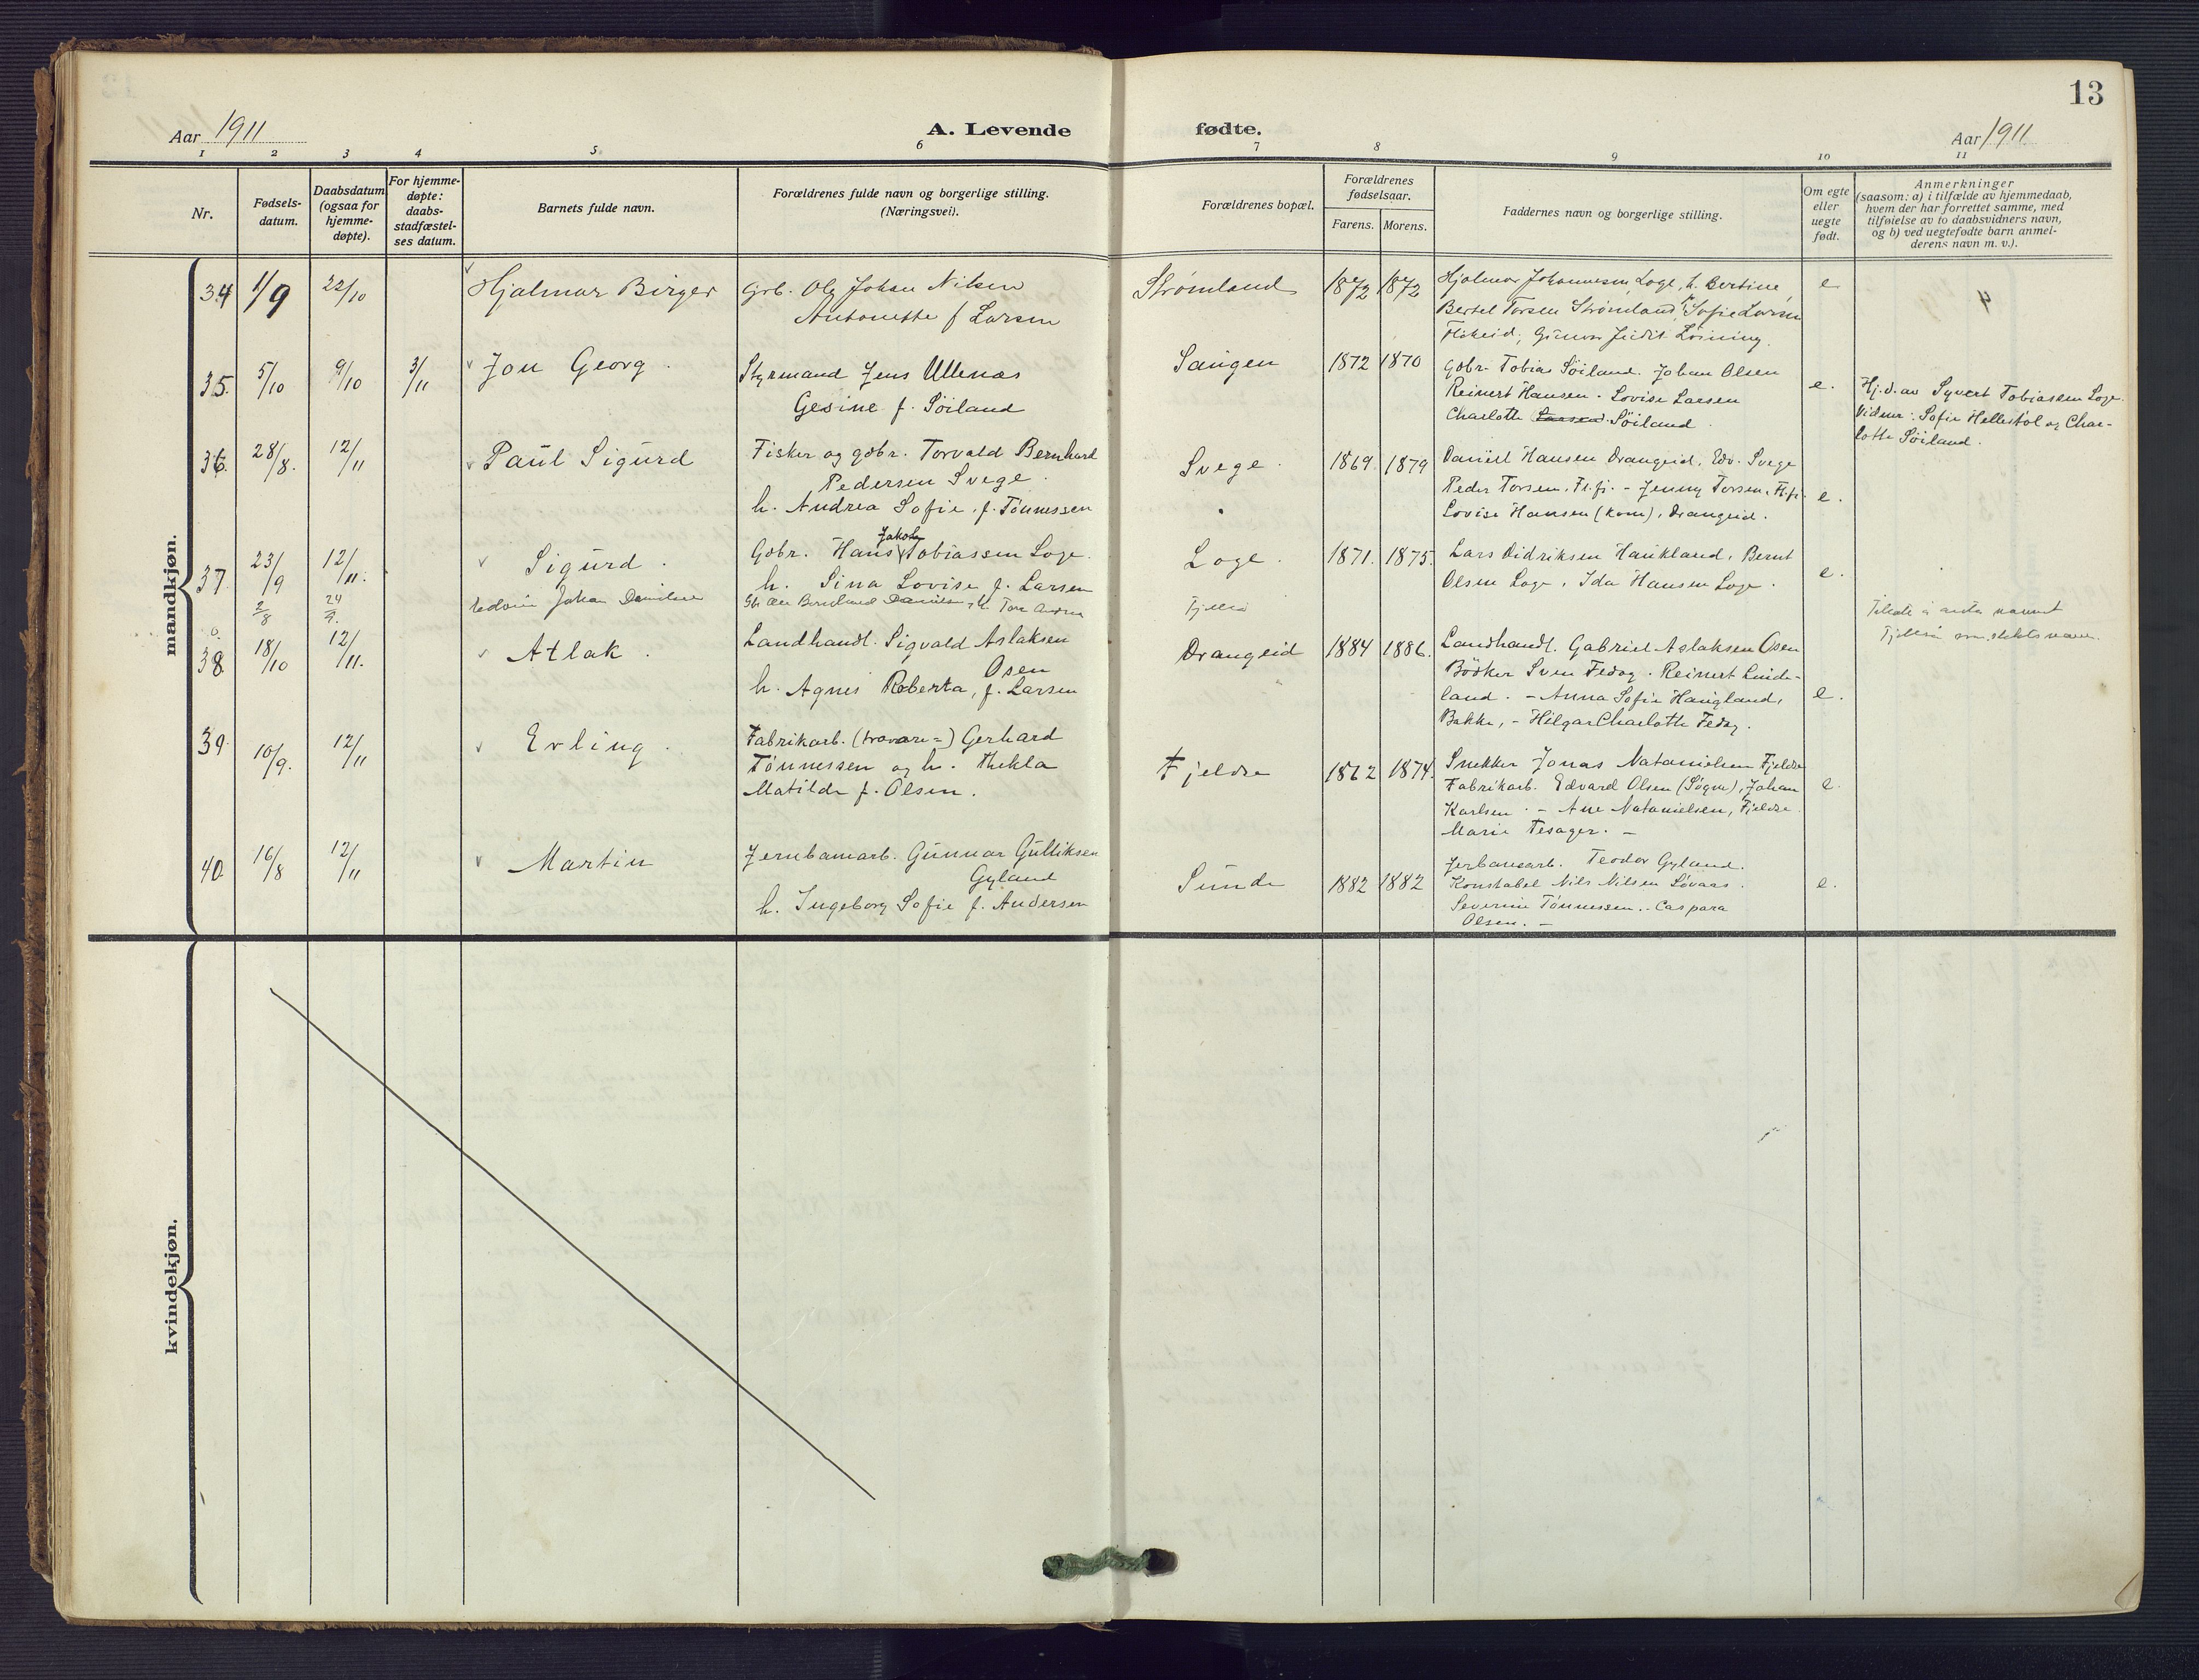 13
Aar 1911
A. Levende fødte.
Aar 1911
1 2 3 4 5 6 7 8 9 10 11
Nr.
Fødsels-
datum.
Daabsdatum
(ogsaa for
hjemme-
døpte).
For hjemme-
døpte:
daabs-
stadfæstel-
ses datum.
Barnets fulde navn.
Forældrenes fulde navn og borgerlige stilling.
(Næringsvei).
Forældrenes bopæl.
Forældrenes
fødselsaar.
Farens. Morens.
Faddernes navn og borgerlige stilling.
Om egte
eller
uegte
født.
Anmerkninger
(saasom: a) i tilfælde av hjemmedaab,
hvem der har forrettet samme, med
tilføielse av to daabsvidners navn,
og b) ved uegtefødte barn anmel-
derens navn m. v.).
mandkjøn.
34 1/9 22/10 Hjalmar Birger
Grb. Ole Johan Nilsen
Antonette f Larsen
Strømland 1872 1872
Hjalmar Johannesen Loge, h. Bertine,
Bertel Torsen Strømland, Sofie Larsen
Flikeid, Gunvor Judit Løining.
e
35. 5/10 9/10 3/11 Jon Georg.
Styrmand Jens Ullenæs
Gesine f. Söiland
Saugen 1872 1870
Gdbr. Tobias Söiland. Johan Olsen
Reinert Hansen. Lovise Larsen
Charlotte Larsen Söiland.
e.
Hj.d. av Syvert Tobiassen Loge.
Vidner: Sofie Hellestöl og Char-
lotte Söiland.
36. 28/8. 12/11 Paul Sigurd
Fisker og gdbr. Torvald Bernhard
Pedersen Svege.
h. Andrea Sofie, f. Tönnessen
Svege. 1869 1879
Daniel Hansen Drangeid, Edv. Svege
Peder Torsen, Fl.fj. - Jenny Torsen, Fl.fj.
Lovise Hansen (kone), Drangeid.
e.
37. 23/9 12/11. Sigurd.
Gdbr. Hans Jakob Tobiassen Loge.
h. Sina Lovise f. Larsen
Loge. 1871. 1875.
Lars Didriksen Haukland, Bernt
Olsen Loge, Ida Hansen Loge.
e.
2/8 24/9. Edvin Johan Danielsen
38 18/10 12/11. Atlak.
Landhandl. Sigvald Aslaksen
Osen
h. Agnes Roberta, f. Larsen
Drangeid 1884 1886.
Landhandl. Gabriel Aslaksen Osen
Bödker Sven Fedog. Reinert Linde-
land. - Anna Sofie Haugland,
Bakke, - Hilgar Charlotte Fedog.
e.
39. 10/9. 12/11 Erling.
Fabrikarb. (travare=) Gerhard
Tönnessen og h. Thekla
Matilde f. Olsen.
Fjeldse 1862 1874.
Snekker Jonas Natanielsen Fjeldse
Fabrikarb. Edvard Olsen (Søgne), Johan
Karlsen. - Ane Natanielsen, Fjeldse
Marie Tesager. -
e.
40. 16/8 12/11 Martin
Jernbanearb. Gunnar Gulliksen
Gyland
h. Ingeborg Sofie f. Andersen
Sunde 1882 1882
Jerbanearb. Teodor Gyland.
Konstabel Nils Nilsen Lövaas.
Severine Tönnessen. - Caspara
Olsen. -
e.
kvindekjøn.